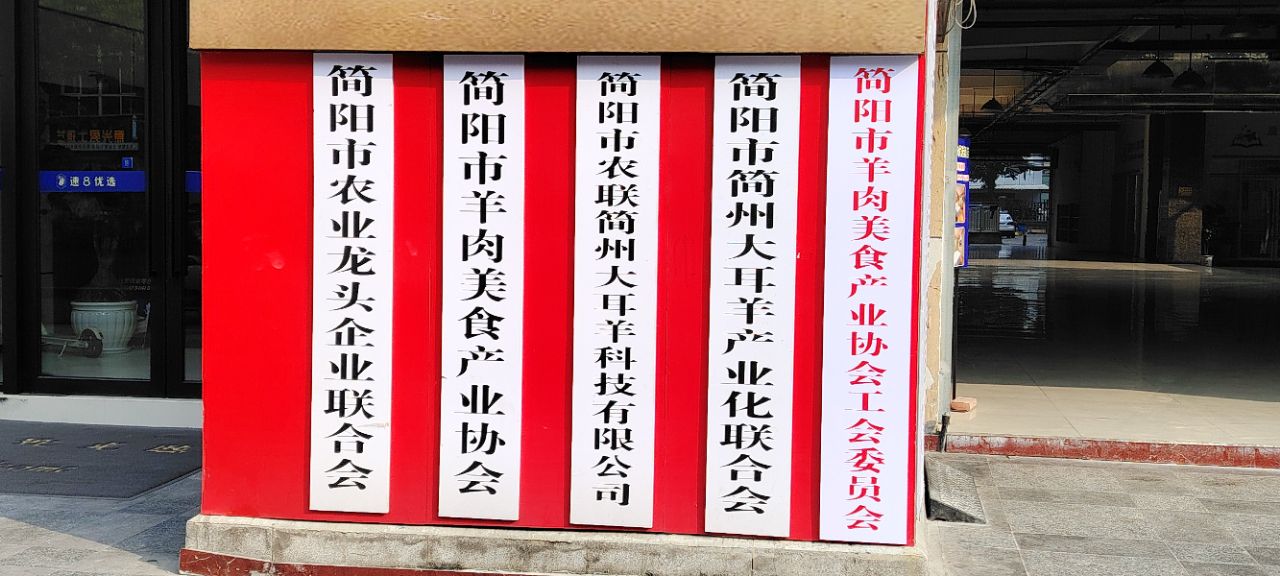 简阳市农业龙头企业联合会
简阳市羊肉美食产业协会
简阳市农联简州大耳羊科技有限公司
简阳市简州大耳羊产业化联合会
简阳市羊肉美食产业协会工会委员会
速8优选